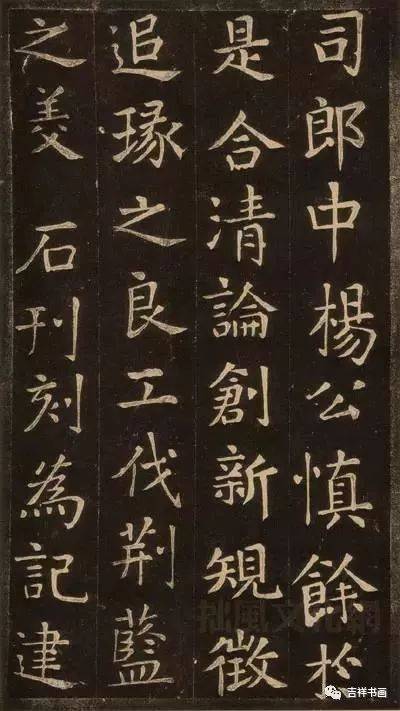 司郎中楊公慎餘於
是合清論創新規徵
追琢之良工伐荊藍
之美 石刊刻為記建
拙風文化網
吉祥书画